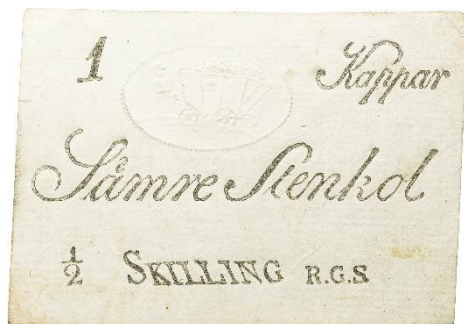 1 Kappar
Sämre Stenkol
½ SKILLING R.G.S